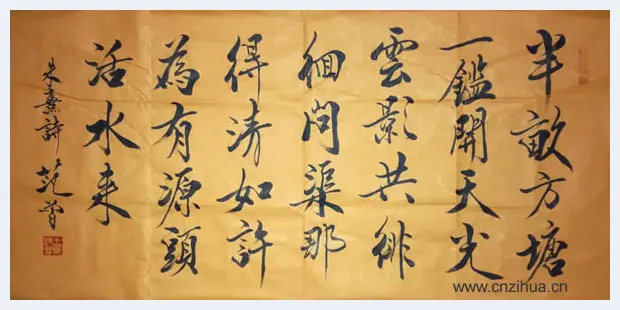 半畝方塘
一鑑開天光
雲影共徘
徊問渠那
得清如許
為有源頭
活水来
朱熹詩
www.cnzihua.cn